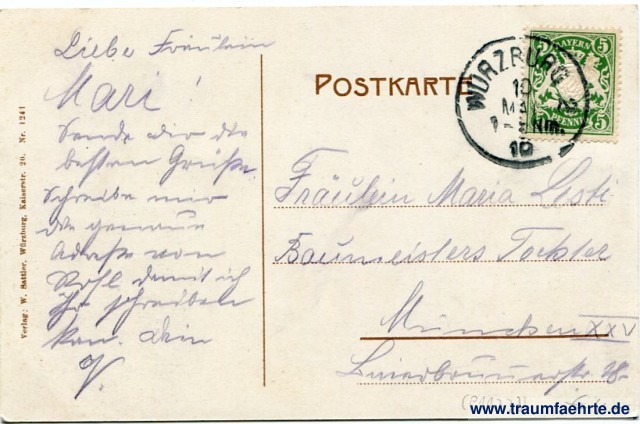 Liebe Fräulein
Mari!
Sende dir die
besten Grüße
Schreibe mir
die genaue
Adreße von
damit ich
ihr schreiben
kan. dein
Verlag: W. Sattler, Würzburg, Kaiserstr. 20. Nr. 1241
POSTKARTE
BAYERN
5 5
PFENNIG
WÜRZBURG 2
10
MAI
Nm.
10
Fräulein Maria
Baumeisters Tochter
München XXV
18.
www.traumfaehrte.de